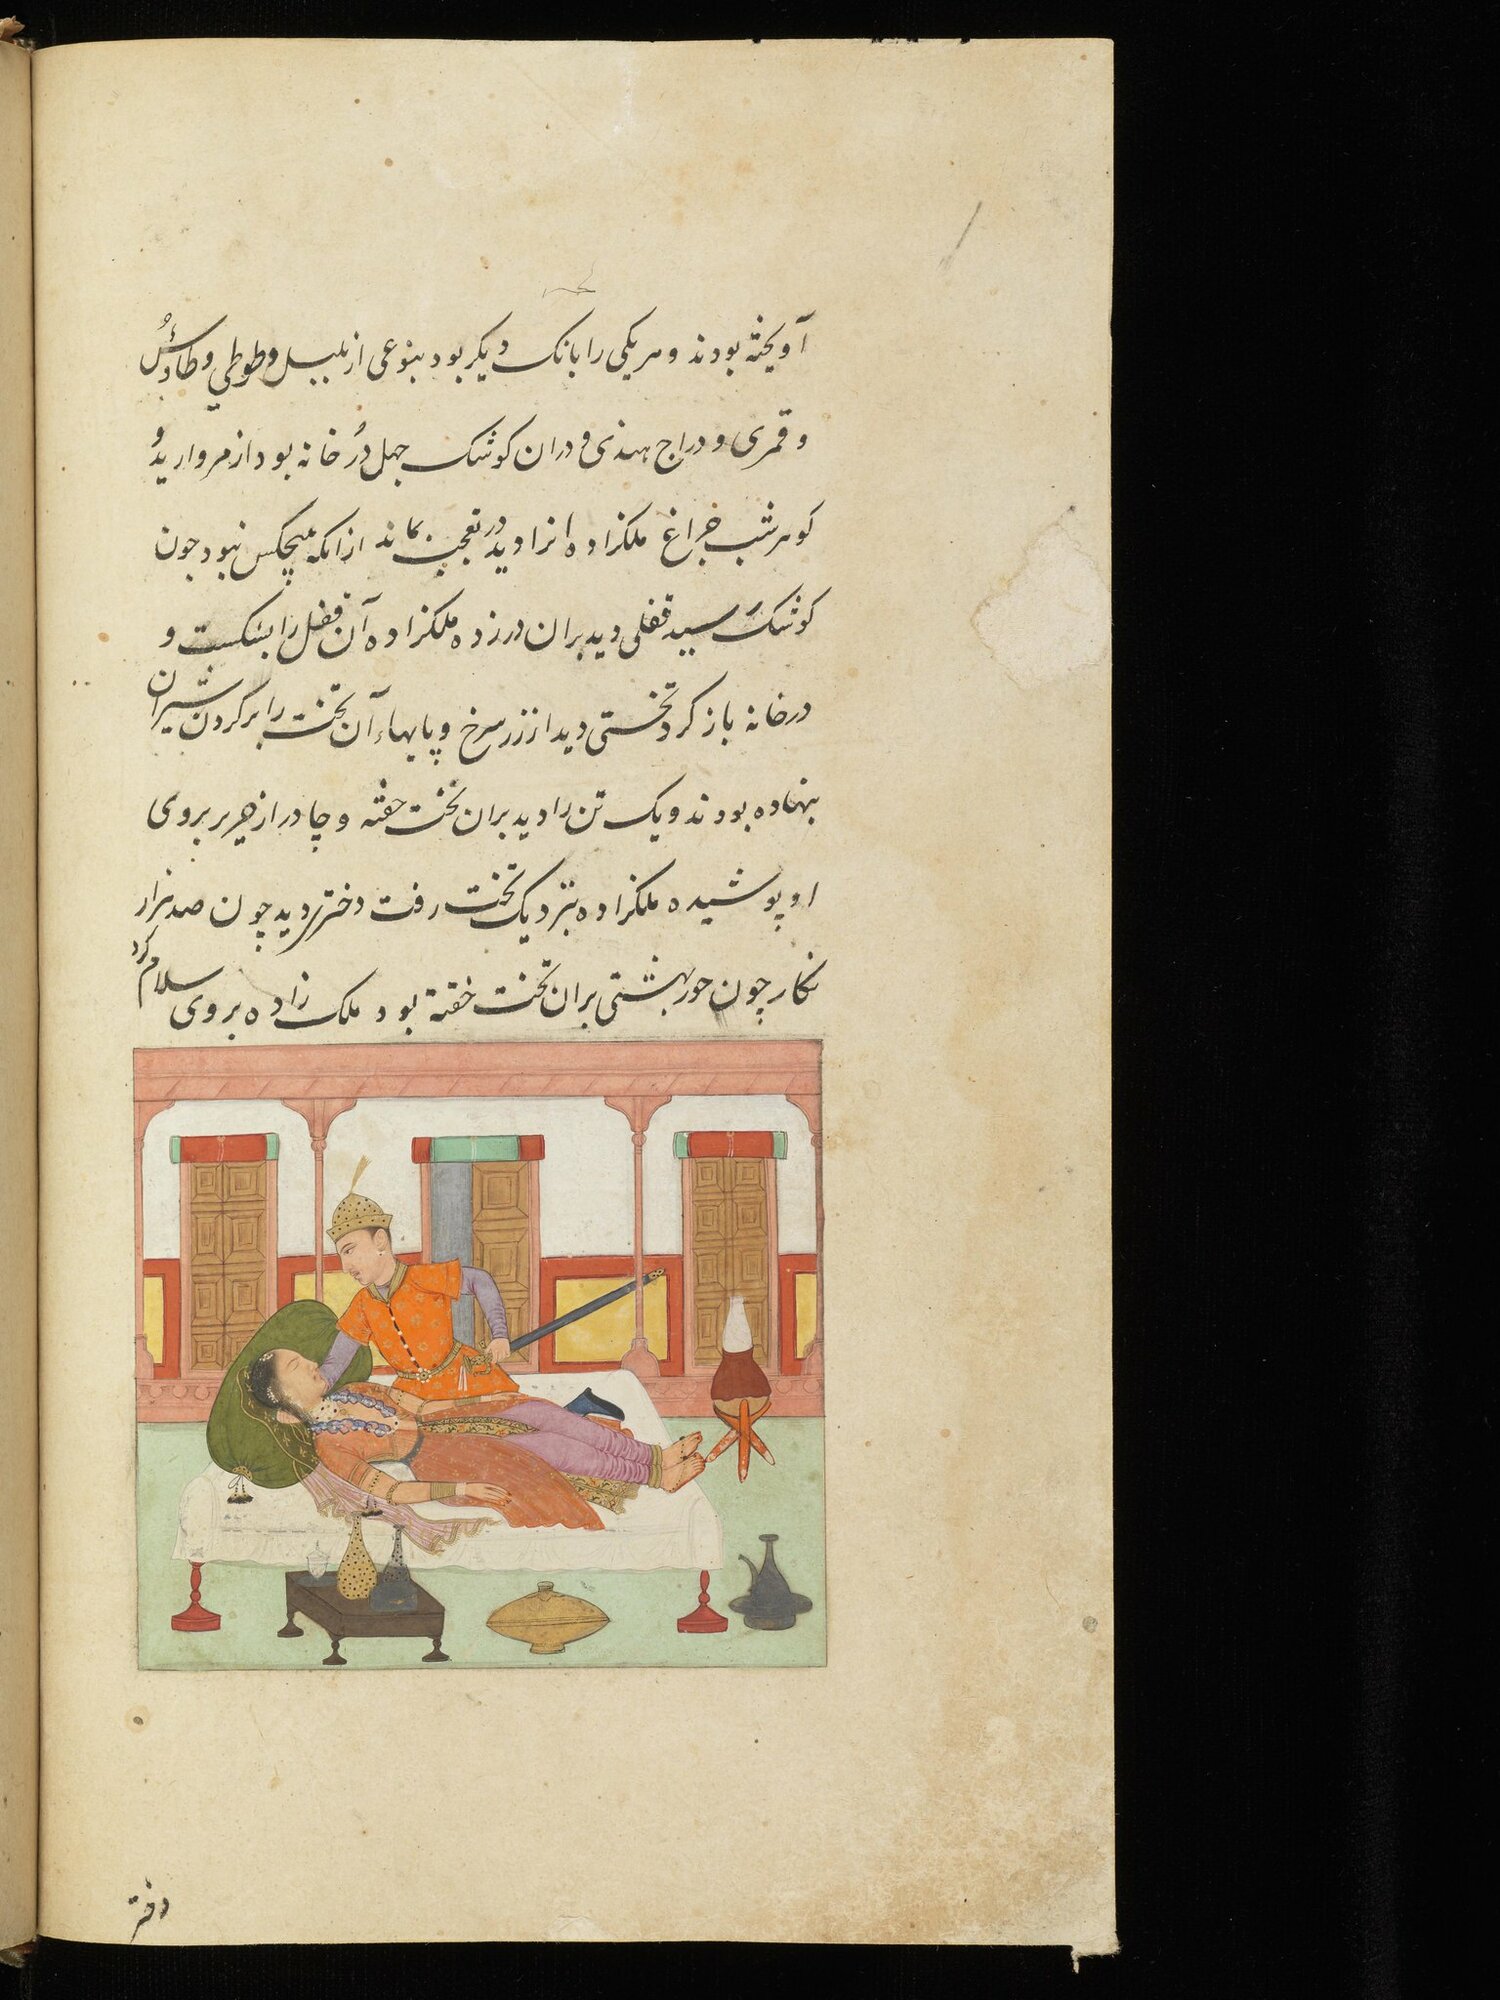 آویخته بودند و هر یکی را بانک دیکر بود بنوعی از بلبل و طوطی و طاؤس
و قمری و دراج هندی و دران کوشک جهل در خانه بود از مروارید و
کوهر شب جراغ ملکزاده انرا دید در تعجب بماند ازانکه هیچکس نبود جون
کوشک رسید قفلی دید بران در زده ملکزاده آن قفل را بشکست و
در خانه باز کرد تختی دید از زر سرخ و پایهاء آن تخت را بر کردن شیران
بنهاده بودند و یک تن را دید بران تخت خفته و چادر از حریر بروی
او پوشیده ملکزاده نزدیک تخت رفت دختری دید چون صد هزار
نکار چون حور بهشتی بران تخت خفته بود ملک زاده بروی سلام کرد
دختر